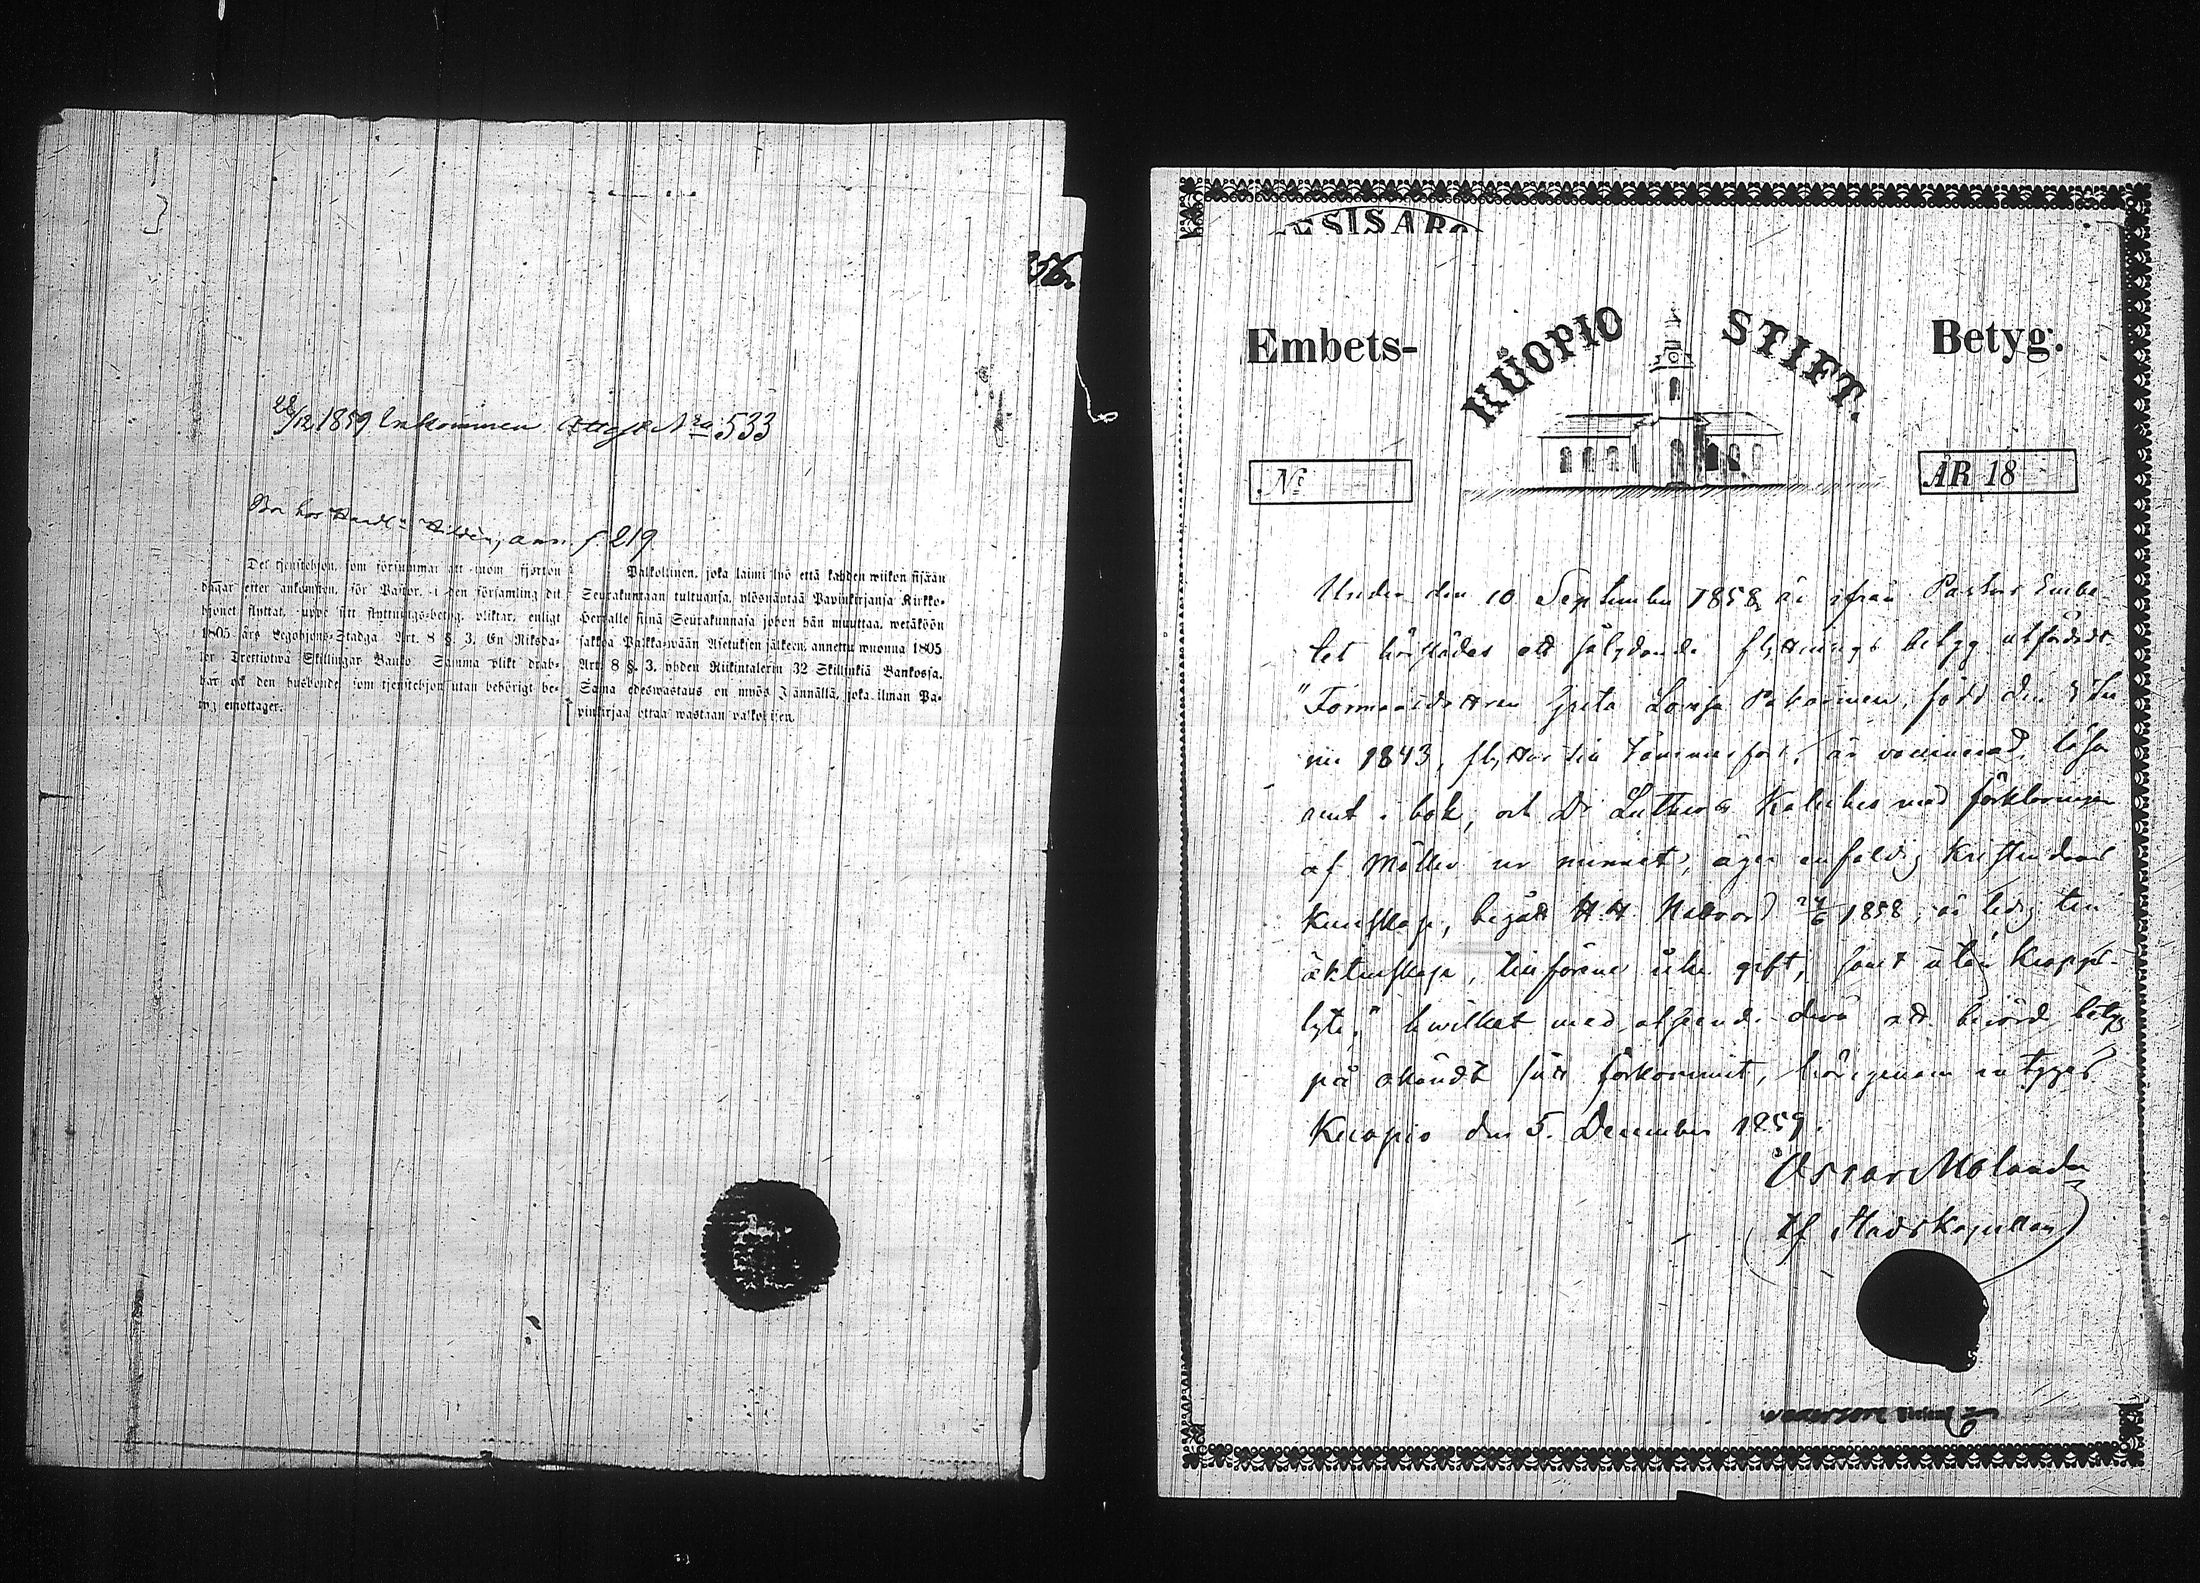 28/12 1859 Inkommen Attest Nro 533
Bor hos Handl. Hildén, ann. f. 219
Det tjenstehjon, som försummar att inom fjorton
dagar efter ankomsten, för Pastor, i den församling dit
hjonet flyttat, uppte sitt flyttnings-betyg, pliktar, enligt
1805 års Legohjons-Stadga Art. 8 §. 3. En Riksda-
ler Trettiotwå Skillingar Banko. Samma plikt drab-
bar ock den husbonde, som tjenstehjon utan behörigt be-
tyg emottager.
Palkollinen, joka laimi lyö että kahden wiikon sisään
Seurakuntaan tultuansa, ylösnäyttää Papinkirjansa Kirkko-
herralle siinä Seurakunnasa johon hän muuttaa, wetäköön
sakkoa Palkka-wään Asetuksen jälkeen, annettu wuonna 1805
Art. 8 §. 3. yhden Riikintalerin 32 Skillinkiä Bankossa.
Sama edeswastaus on myös Isännällä, joka ilman Pa-
pinkirjaa ottaa wastaan palkollisen.
56.
ESISAR
Embets-
KUOPIO STIFT.
Betyg.
No
ÅR 18
Under den 10 September 1858 är ifrån Pastors Embe-
tet härstädes ett sålydande flyttnings betyg utfärdadt
"Formansdottren Greta Lovisa Pakarinen, född den
1843, flyttar till Tammerfors, är vaccinerad, läser
rent i bok, och Dr Luthers Kateches med förklaringen
af Möller ur minnet, äger enfaldig Kristendoms
Kunskap, begått H. H. Nattvard 24/6 1858, är ledig till
äktenskap, tillförene icke gift, samt utan kropps-
lyte," hwilket med afseende derå att berörde betyg
på okändt sätt förkommit, härigenom intygas
Kuopio den 5. December 1859.
Oscar Molander
Tf Stadskapellan